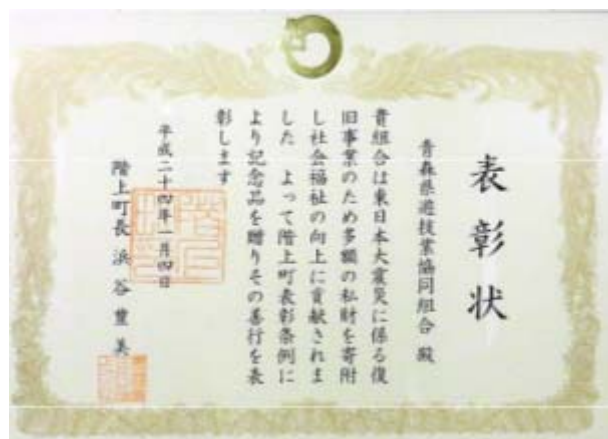 表彰状
青森県遊技業協同組合 殿
貴組合は東日本大震災に係る復
旧事業のため多額の私財を寄附
し社会福祉の向上に貢献されま
した よって階上町表彰条例に
より記念品を贈りその善行を表
彰します
平成二十四年一月四日
階上町長 浜谷豊美